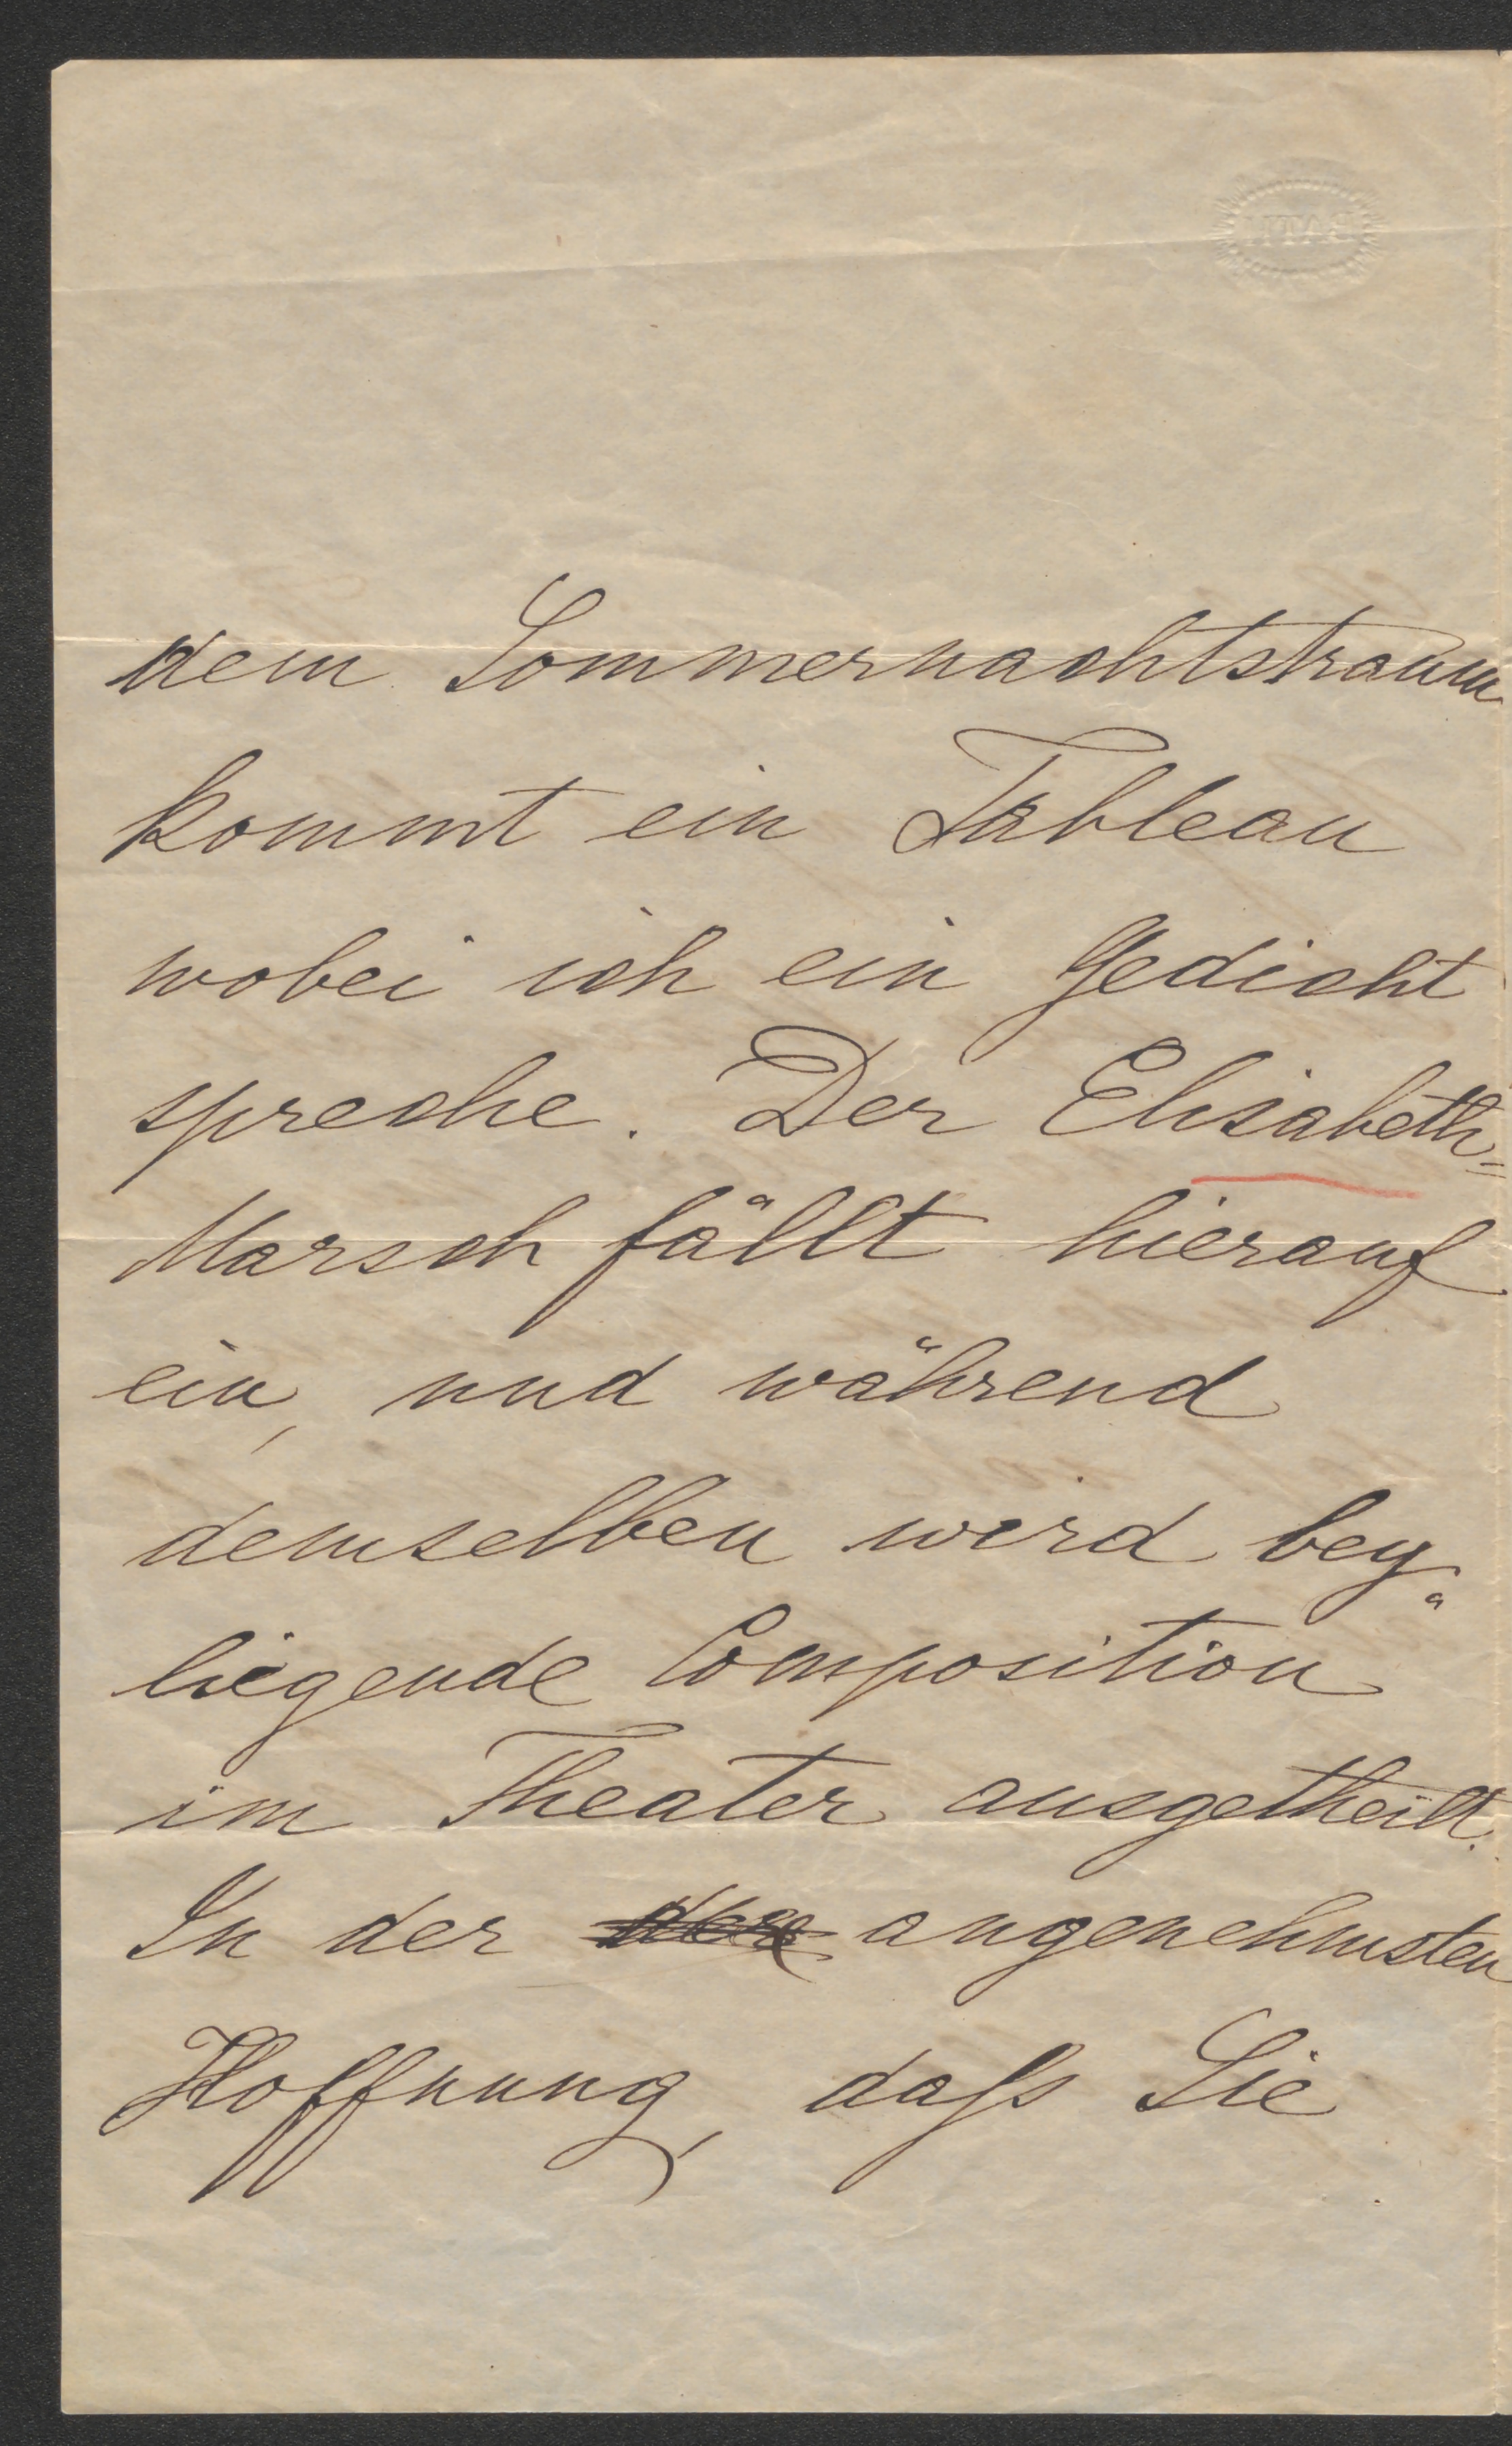 dem Sommernachtstraum
kommt ein Tableau
wobei ich ein Gedicht
spreche. Der Elisabeth=
Marsch fällt hierauf
ein, und während
demselben wird bey=
liegende Composition
im Theater ausgetheilt.
In der angenehmsten
Hoffnung, daſs Sie